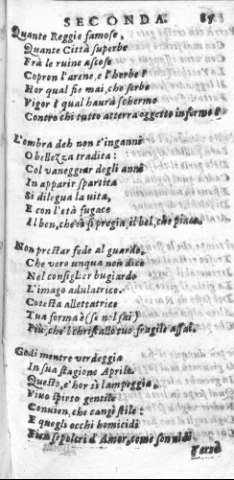 SECONDA. 87
Quante Reggie famose,
Quante Città superbe
Frà le ruine ascose
Copron l'arene, e l'herbe?
Hor qual fie mai, che serbe
Vigor? qual haurà schermo
Contro chi tutto atterra oggetto infermo?
L'ombra deh non t'inganni
O bellezza tradita:
Col vaneggiar degli anni
In apparir spartita
Si dilegua la vita,
E con l'età fugace
Al ben, che si pregia, il bel, che piace.
Non prestar fede al guardo,
Che vero unqua non dice
Nel consigLier bugiardo
L'imago adulatrice.
Cotesta allettatrice
Tua forma è (se nol sai)
Più, che'l christallo tuo, fragile assai.
Godi mentre verdeggia
In sua stagione Aprile.
Questo, c'hor ti lampeggia,
Vivo spirto gentile
Convien, che cangi stile:
E quegli occhi homicidi
Fian sepolcri d'Amor, come son nidi